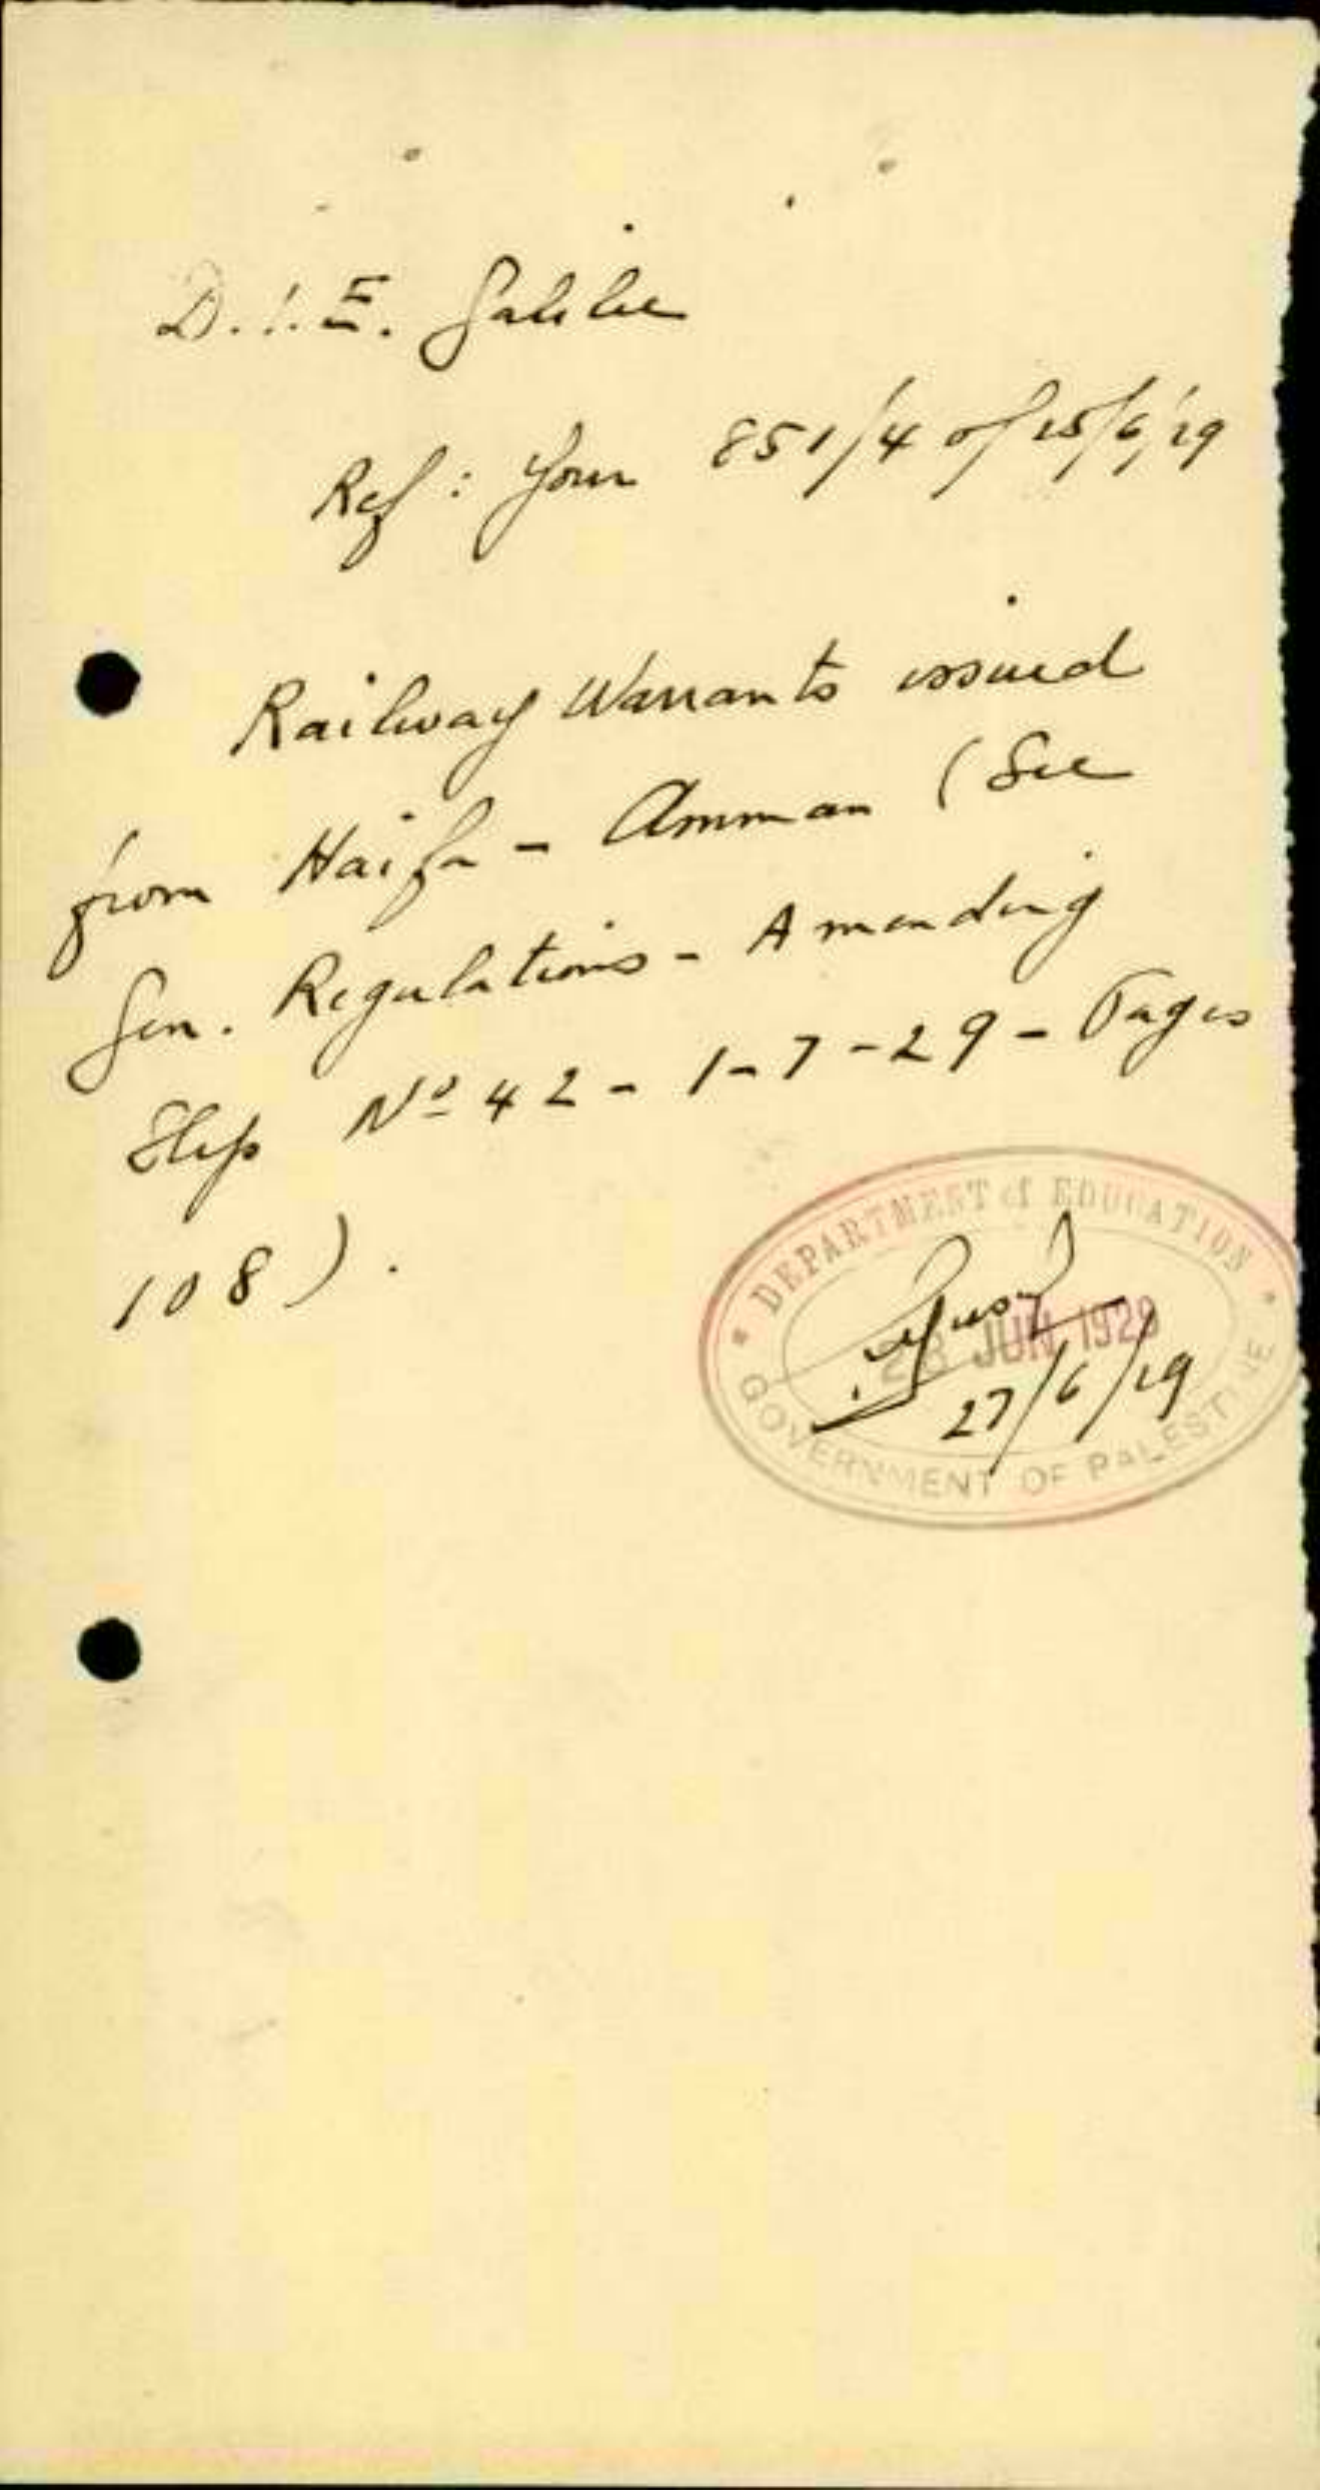 D.I.E. Galilee
Ref: Your 851/4 of 25/6/29
Railway Warrants issued
from Haifa - Amman (See
Gen. Regulations - Amending
Slip No 42 - 1-7-29 - Pages
108).
DEPARTMENT of EDUCATION
28 JUN 1929
27/6/29
GOVERNMENT OF PALESTINE